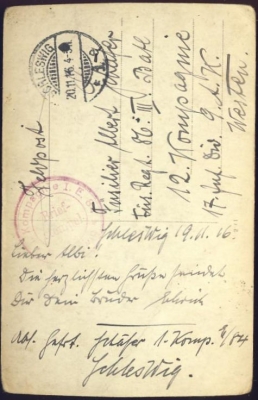 SCHLESWIG
20.11.16. 4-5
Feldpost
Füsilier Albert
Füs. Regt. No: III. Batl
12. Kompagnie
17. Inf. Div. 9. A. K.
Westen.
Schleswig 19.11.16.
Lieber Albi.
Die herzlichsten Grüße sendet
Dir Dein Bruder
Abs. Gefrt. 1. Komp. 84
Schleswig.